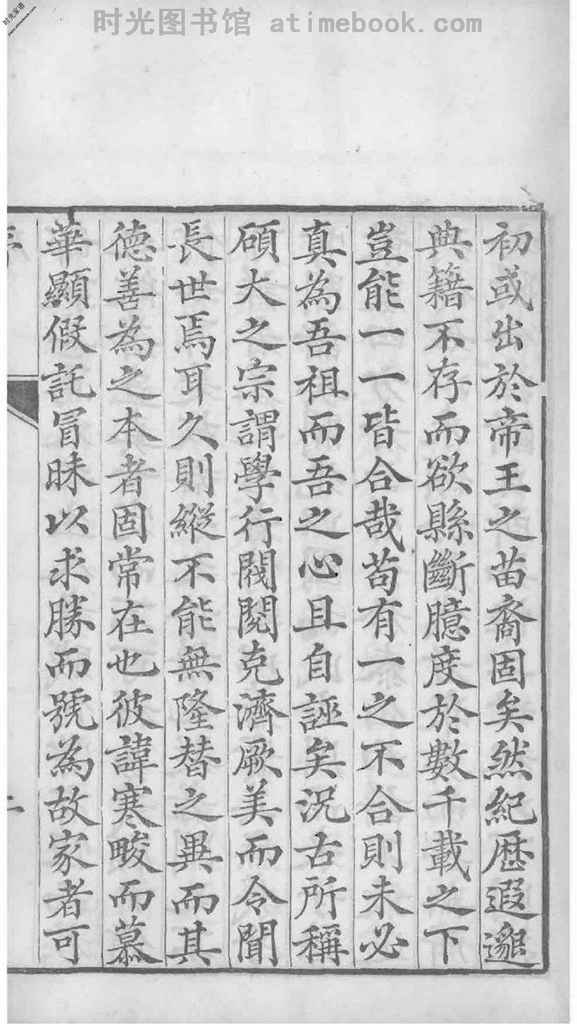 时光图书馆 atimebook.com
初或出於帝王之苗裔固矣然紀歷遐邈
典籍不存而欲縣斷臆度於數千載之下
豈能一一皆合哉苟有一之不合則未必
真為吾祖而吾之心且自誣矣況古所稱
碩大之宗謂學行閥閱克濟厥美而令聞
長世焉耳久則縱不能無隆替之異而其
德善為之本者固常在也彼諱寒畯而慕
華顯假託冒昧以求勝而號為故家者可